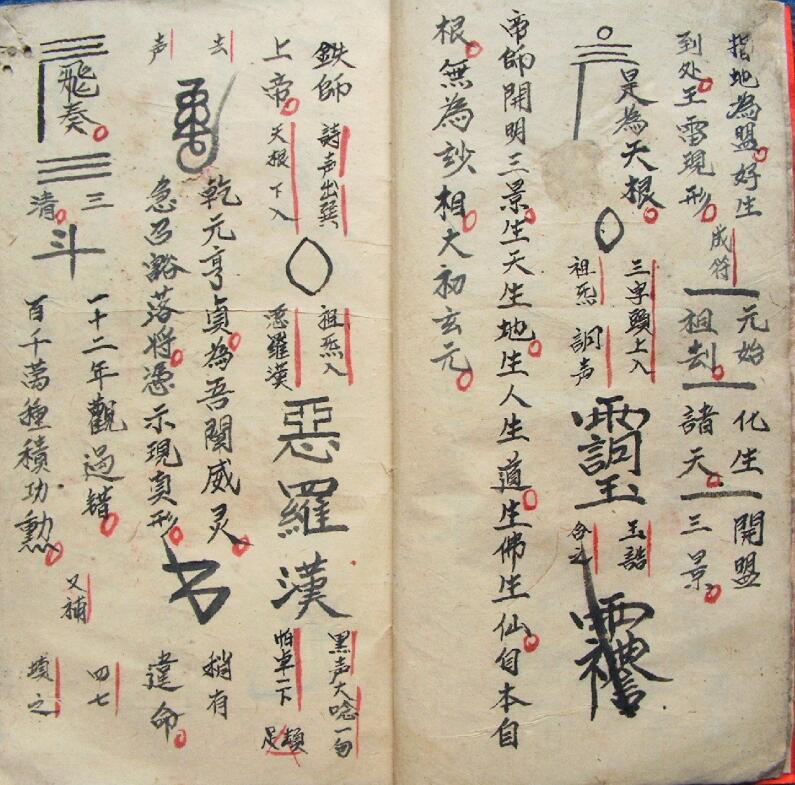 指地為盟好生
到处王雷現形
成符
元始
祖刦
化生
諸天
開盟
三景
是為天根
三字頭上入
祖炁
詞声
玉誥
合之
帝師開明三景生天生地生人生道生佛生仙自本自
根無為玅相大初玄元
鉄師
上帝
詩声出巽
天根下入
祖炁入
惡羅漢
惡羅漢
黑声大唸一句
怕卓一下
足頓
去
声
乾元亨貞為吾闡威灵
急召豁落將憑示現真形
稍有
違命
飛奏
三
清
斗
一十二年觀過錯
百千萬種積功勲
又補
四七
填之